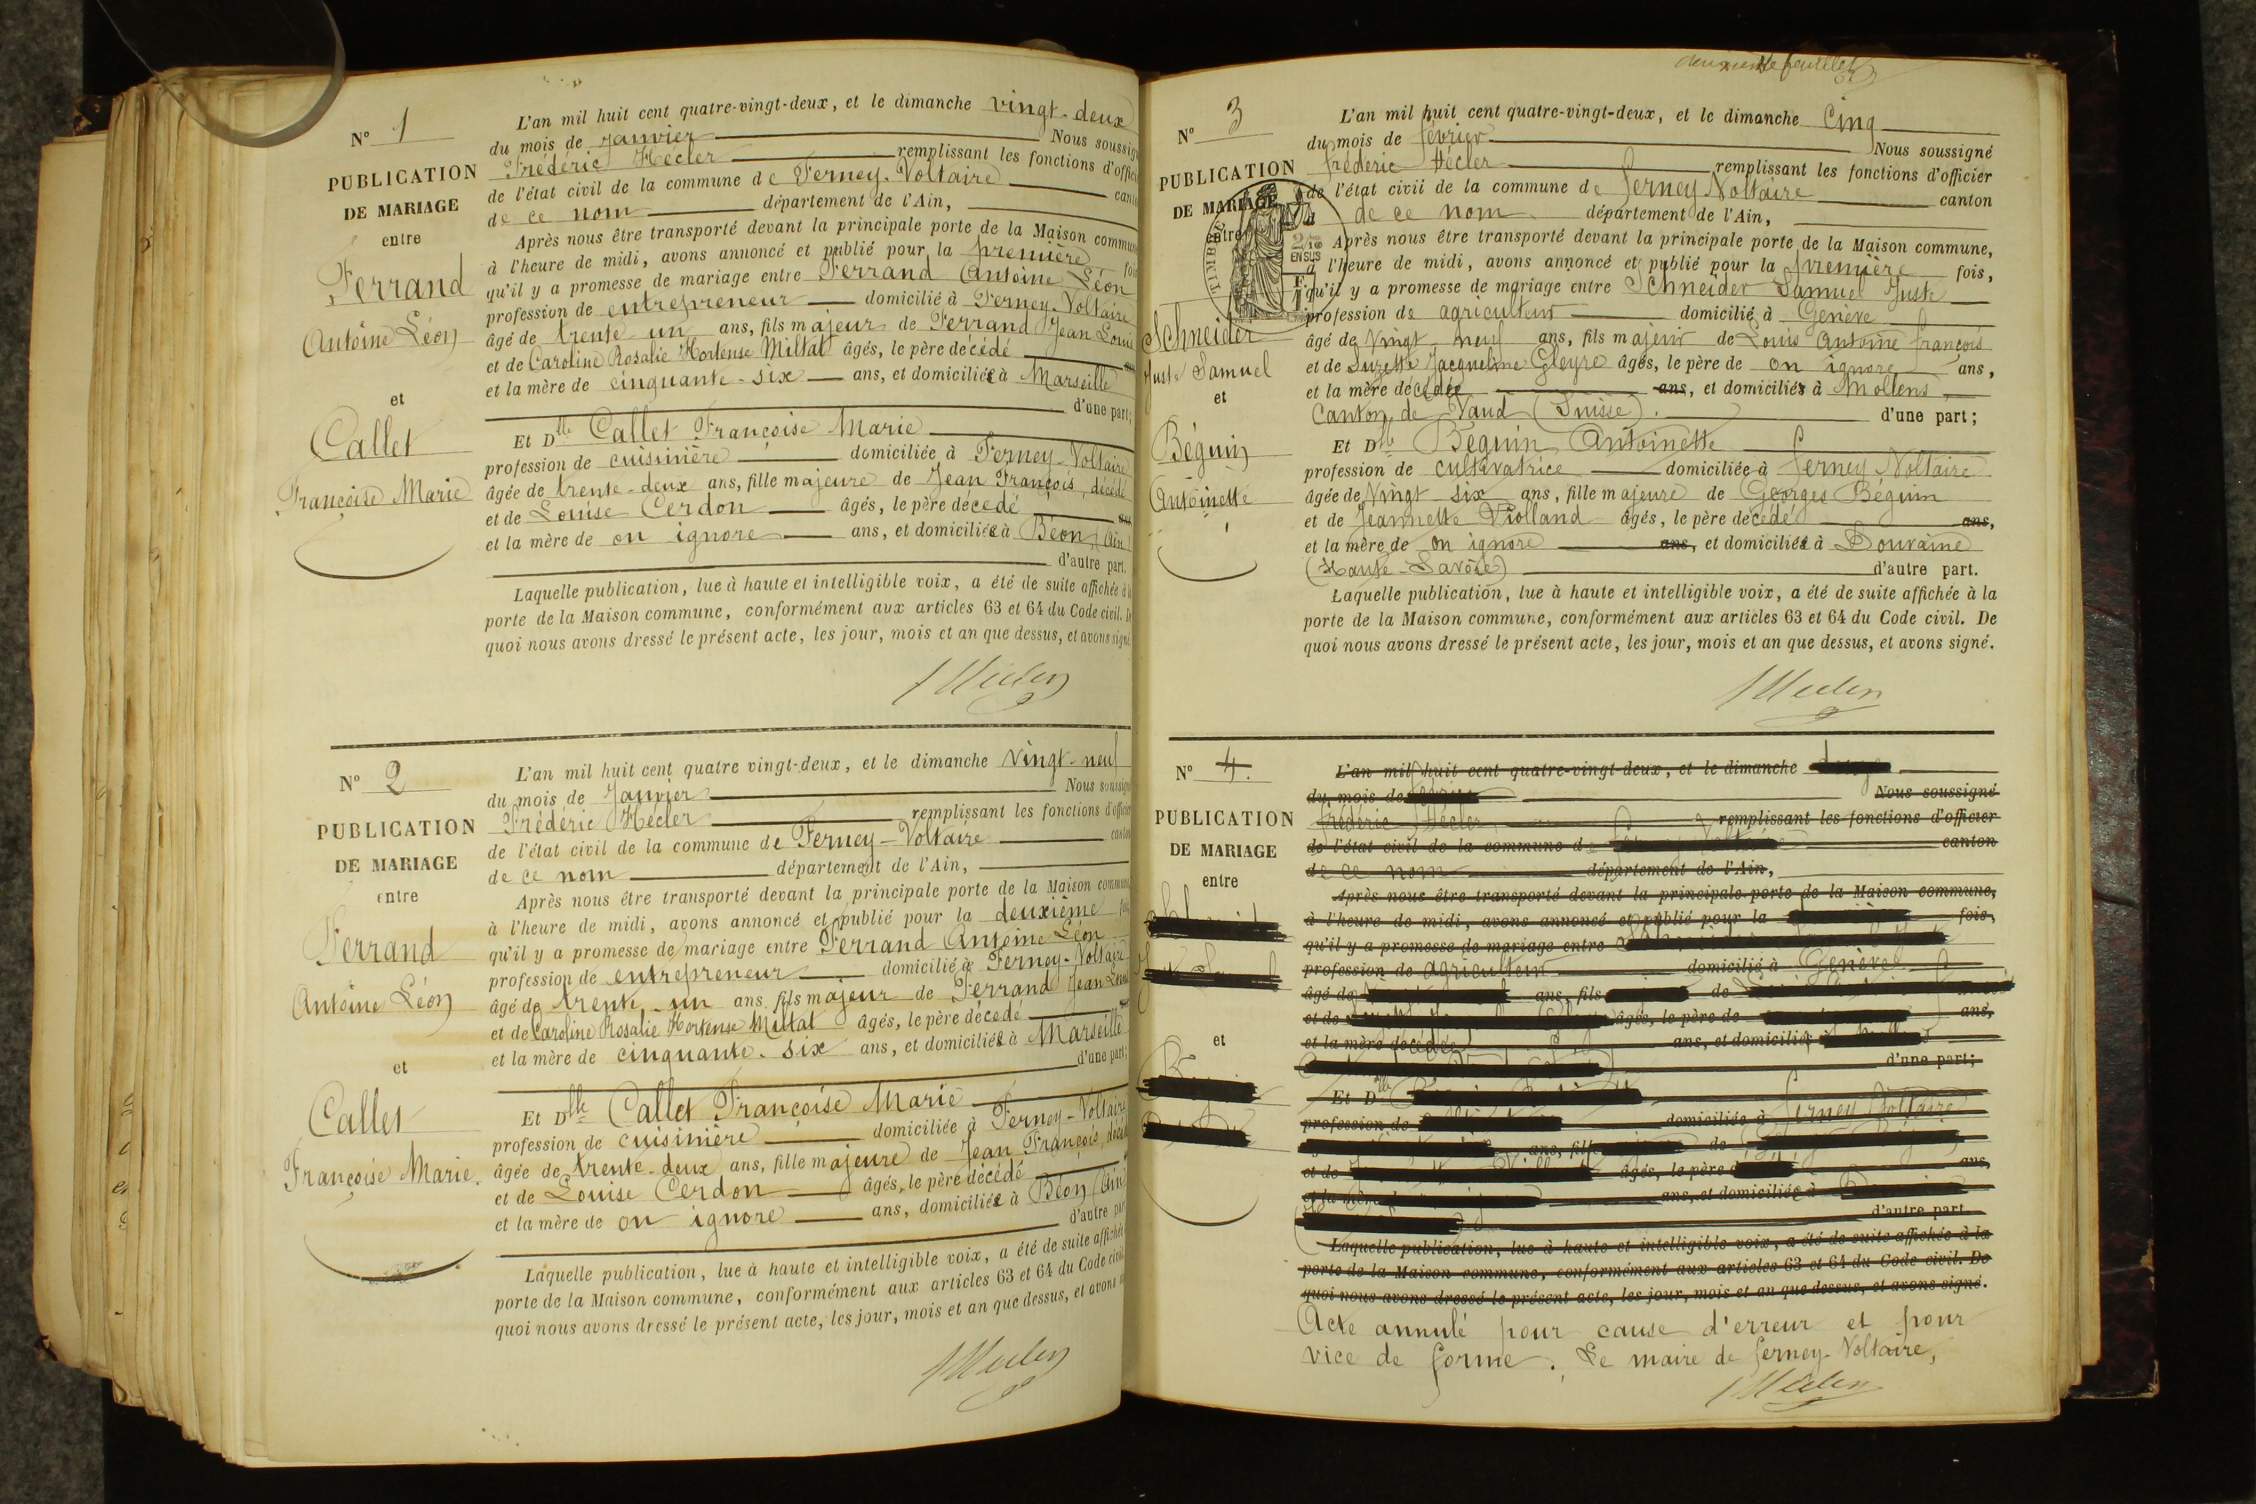 N° 1
PUBLICATION
DE MARIAGE
entre
Ferrand
Antoine Léon
et
Callet
Françoise Marie
L'an mil huit cent quatre-vingt-deux, et le dimanche vingt-deux
du mois de Janvier Nous soussigné
Frédéric Hécler remplissant les fonctions d'officier
de l'état civil de la commune de Ferney-Voltaire canton
de ce nom département de l'Ain,
Après nous être transporté devant la principale porte de la Maison commune
à l'heure de midi, avons annoncé et publié pour la première fois
qu'il y a promesse de mariage entre Ferrand Antoine Léon
profession de entrepreneur domicilié à Ferney-Voltaire
âgé de trente-un ans, fils majeur de Ferrand Jean Louis
et de Caroline Rosalie Hortense Miltat âgés, le père décédé
et la mère de cinquante-six ans, et domiciliée à Marseille
d'une part;
Et Dlle Callet Françoise Marie
profession de cuisinière domiciliée à Ferney-Voltaire
âgée de trente-deux ans, fille majeure de Jean François, décédé
et de Louise Cerdon âgés, le père décédé
et la mère de on ignore ans, et domiciliée à Béon (Ain)
d'autre part.
Laquelle publication, lue à haute et intelligible voix, a été de suite affichée à la
porte de la Maison commune, conformément aux articles 63 et 64 du Code civil. De
quoi nous avons dressé le présent acte, les jour, mois et an que dessus, et avons signé.
N° 2
PUBLICATION
DE MARIAGE
entre
Ferrand
Antoine Léon
et
Callet
Françoise Marie.
L'an mil huit cent quatre vingt-deux, et le dimanche vingt-neuf
du mois de Janvier Nous soussigné
Frédéric Hécler remplissant les fonctions d'officier
de l'état civil de la commune de Ferney-Voltaire canton
de ce nom département de l'Ain,
Après nous être transporté devant la principale porte de la Maison commune
à l'heure de midi, avons annoncé et publié pour la deuxième fois
qu'il y a promesse de mariage entre Ferrand Antoine Léon
profession de entrepreneur domicilié à Ferney-Voltaire
âgé de trente-un ans, fils majeur de Ferrand Jean Louis
et de Caroline Rosalie Hortense Miltat âgés, le père décédé
et la mère de cinquante-six ans, et domiciliée à Marseille
d'une part;
Et Dlle Callet Françoise Marie
profession de cuisinière domiciliée à Ferney-Voltaire
âgée de trente-deux ans, fille majeure de Jean François, décédé
et de Louise Cerdon âgés, le père décédé
et la mère de on ignore ans, domiciliée à Béon (Ain)
d'autre part
Laquelle publication, lue à haute et intelligible voix, a été de suite affichée
porte de la Maison commune, conformément aux articles 63 et 64 du Code civil
quoi nous avons dressé le présent acte, les jour, mois et an que dessus, et avons
deuxième feuillet
N° 3
PUBLICATION
DE MARIAGE
entre
TIMBRE
2/10
EN SUS
Schneider
Juste Samuel
et
Béguin
Antoinette
L'an mil huit cent quatre-vingt-deux, et le dimanche Cinq
du mois de février Nous soussigné
frédéric Hécler remplissant les fonctions d'officier
de l'état civil de la commune de ferney Voltaire canton
de ce nom département de l'Ain,
Après nous être transporté devant la principale porte de la Maison commune,
à l'heure de midi, avons annoncé et publié pour la première fois,
qu'il y a promesse de mariage entre Schneider Samuel Juste
profession de agriculteur domicilié à Genève
âgé de Vingt neuf ans, fils majeur de Louis Antoine françois
et de Suzette Jacqueline Gleyre âgés, le père de on ignore ans,
et la mère décédée ans, et domiciliés à Mollens
Canton de Vaud (Suisse). d'une part;
Et Dlle Béguin Antoinette
profession de cultivatrice domiciliée à ferney Voltaire
âgée de Vingt six ans, fille majeure de Georges Béguin
et de Jeannette Violland âgés, le père décédé ans,
et la mère de on ignore ans, et domiciliée à Douvaine
(Haute-Savoie) d'autre part.
Laquelle publication, lue à haute et intelligible voix, a été de suite affichée à la
porte de la Maison commune, conformément aux articles 63 et 64 du Code civil. De
quoi nous avons dressé le présent acte, les jour, mois et an que dessus, et avons signé.
N° 4.
PUBLICATION
DE MARIAGE
entre
et
L'an mil huit cent quatre-vingt-deux, et le dimanche
du mois de Nous soussigné
frédéric Hécler remplissant les fonctions d'officier
de l'état civil de la commune de canton
de ce nom département de l'Ain,
Après nous être transporté devant la principale porte de la Maison commune,
à l'heure de midi, avons annoncé et publié pour la fois,
qu'il y a promesse de mariage entre
profession de agriculteur domicilié à Genève
âgé de ans, fils de
et de âgés, le père de ans,
et la mère décédée ans, et domiciliés à
d'une part;
Et Dlle
profession de domiciliée à ferney Voltaire
ans, fille de
et de âgés, le père ans,
et la mère ans, et domiciliée à
d'autre part
Laquelle publication, lue à haute et intelligible voix, a été de suite affichée à la
porte de la Maison commune, conformément aux articles 63 et 64 du Code civil. De
quoi nous avons dressé le présent acte, les jour, mois et an que dessus, et avons signé.
Acte annulé pour cause d'erreur et pour
vice de forme. Le maire de ferney-Voltaire,